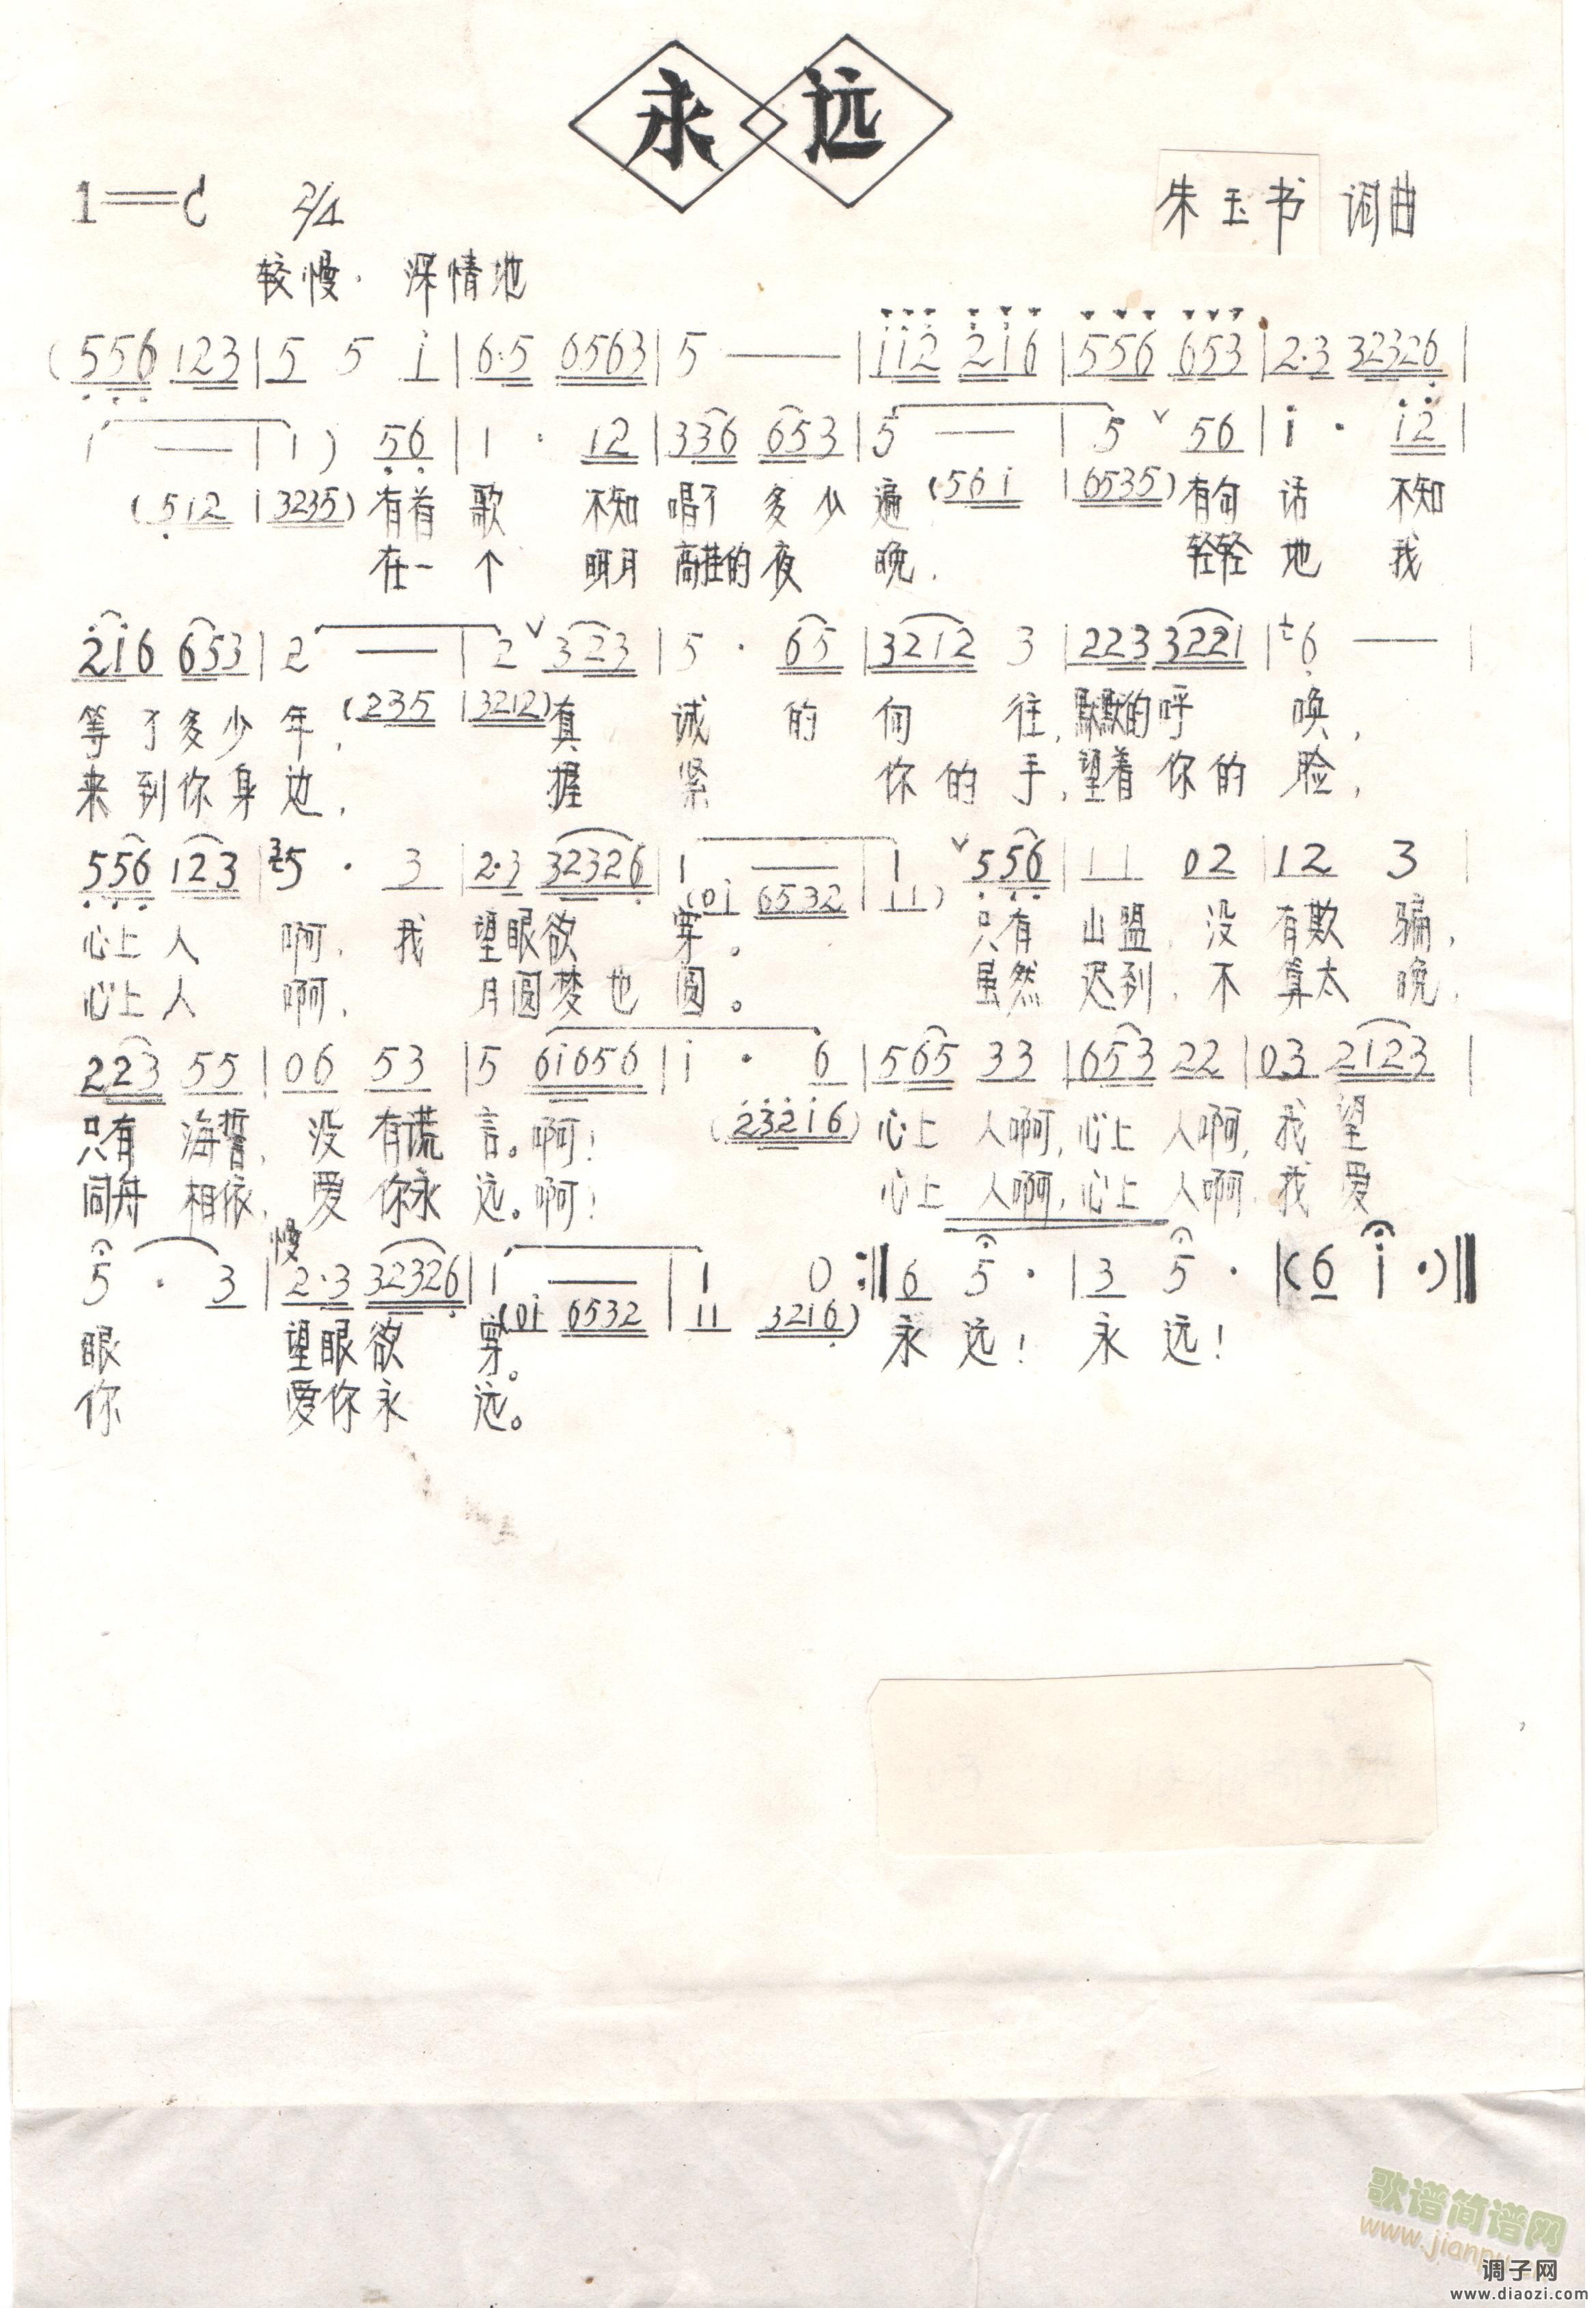 永远
1=C 2/4
朱玉书 词曲
较慢. 深情地
(556 123 | 5 5 i | 6·5 0563 | 5 — | i i 2 2 i 6 | 556 653 | 2·3 32326 |
1 — | 1 ) 56 | 1 · 12 | 336 653 | 5 — | 5 ∨ 56 | i · i2 |
(512 | 3235) 有首 歌 不知 唱了 多少 遍, (56i | 6535) 有句 话 不知
在一 个 明月 高挂的夜 晚, 轻轻 地 我
2i6 653 | 2 — | 2 ∨ 323 | 5 · 65 | 3212 3 | 223 3221 | 6 — |
等了多少年, (235 | 3212) 真 诚 的 向 往, 默默的呼 唤,
来到你身边, 握 紧 你的手, 望着你的脸,
556 123 | 5 · 3 | 2·3 32326 | 1 — | 1 ∨ 556 | 11 02 | 12 3 |
(0i 6532 | 11)
心上人 啊, 我 望眼欲 穿。 只有 山盟, 没 有欺 骗,
心上人 啊, 月圆梦也 圆。 虽然 迟到, 不 算太 晚,
223 55 | 06 53 | 5 6i656 | i · 6 | 565 33 | 653 22 | 03 2123 |
只有 海誓, 没 有谎 言。啊! (232i6) 心上 人啊, 心上 人啊, 我 望
同舟 相依, 爱 你永 远。啊! 心上 人啊, 心上 人啊, 我 爱
慢
5 · 3 | 2·3 32326 | 1 — | 1 0 :‖ 6 5 · | 3 5 · | (6 i ·) ‖
(0i 6532 | 11 3216)
眼 望眼欲 穿。 永 远! 永 远!
你 爱你永 远。
歌谱简谱网
调子网
www.diaozi.com